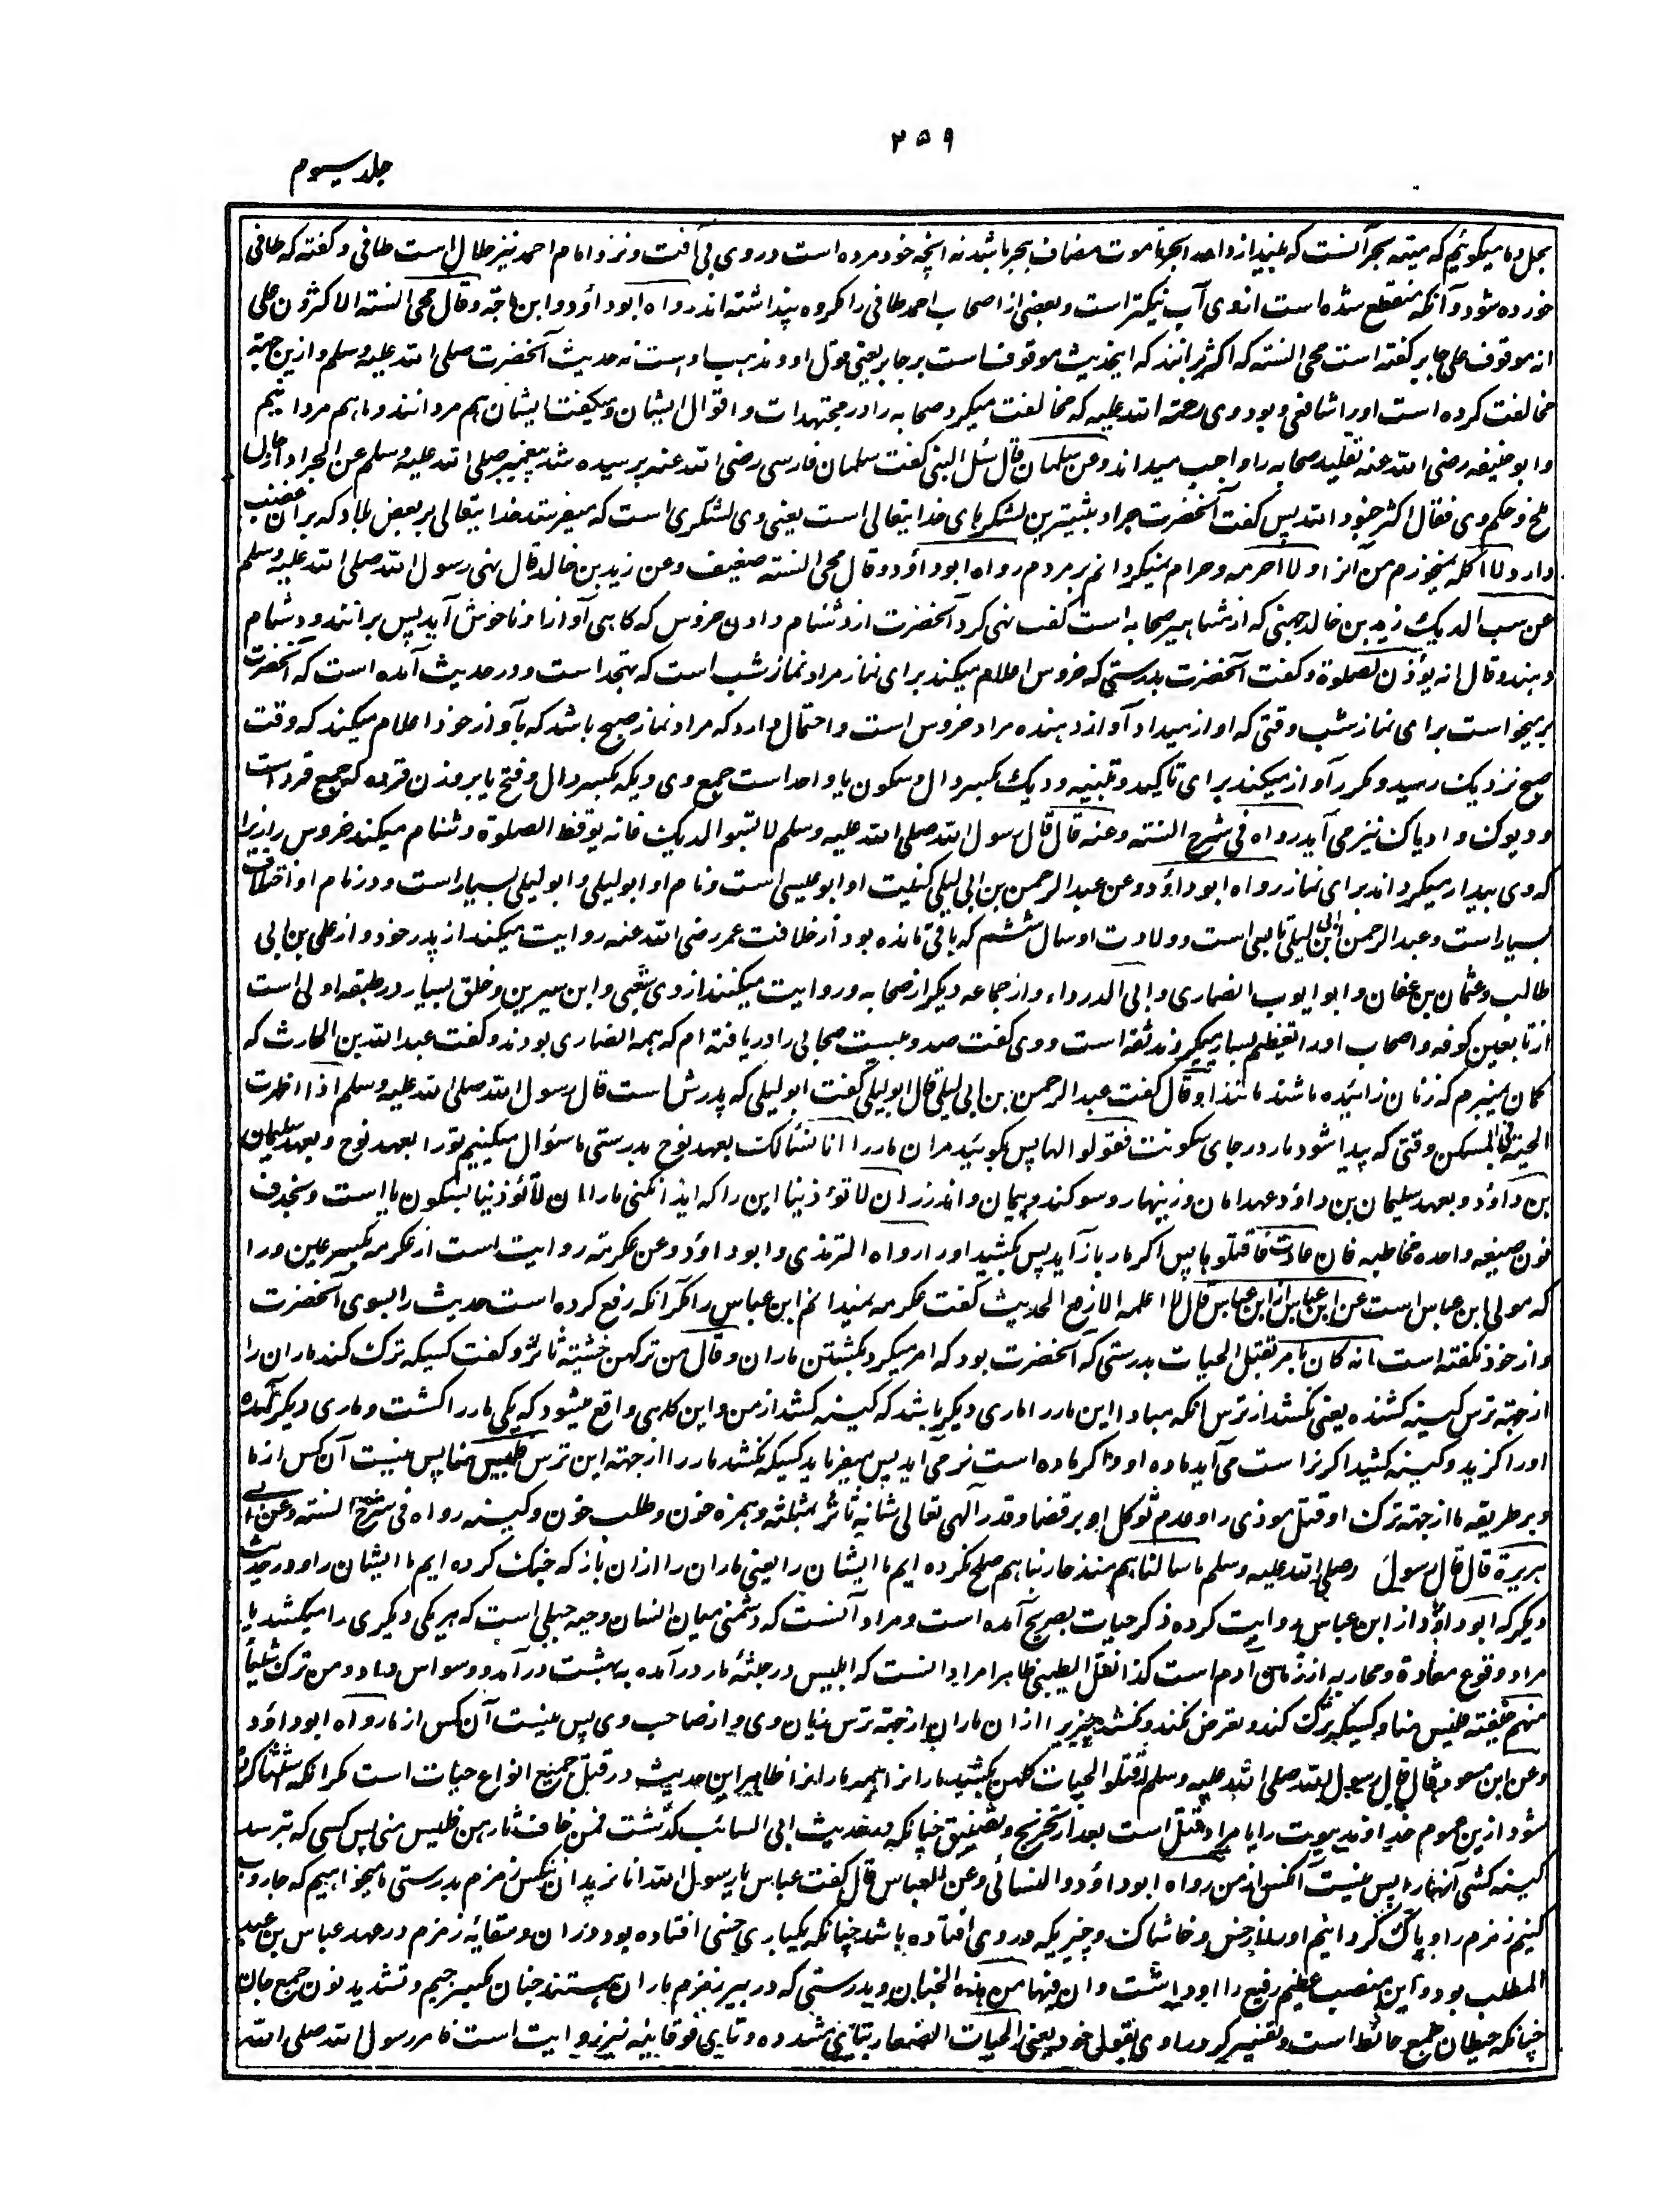 ۲۵۹
جلد سیوم
بحل و ما میگوئیم که میتهٔ بحر آنست که بیندازد او را بحر تا موت مضاف ببحر باشد نه آنچه خود مرده است در وی بی آفت و نزد امام احمد نیز حلال است طافی و گفته که طافی
خورده شود و آنکه منقطع شده است از وی آب نیکتر است و بعضی از اصحاب احمد طافی را مکروه پنداشته اند رواه ابو داؤد و ابن ماجة و قال محی السنته الاکثرون علی
انه موقوف علی جابر گفته است محی السنته که اکثر برانند که این حدیث موقوف است بر جابر یعنی قول او و مذهب اوست نه حدیث آنحضرت صلی الله علیه وسلم و ازین جهته
مخالفت کرده است او را شافعی و بود وی رحمته الله علیه که مخالفت میکرد صحابه را در مجتهدات و اقوال ایشان و میگفت ایشان هم مردانند و ما هم مردانیم
و ابو حنیفه رضی الله عنه تقلید صحابه را واجب میداند و عن سلمان قال سئل النبی گفت سلمان فارسی رضی الله عنه پرسیده شد پیغمبر صلی الله علیه وسلم عن الجراد از حال
ملخ و حکم وی فقال اکثر جنود الله پس گفت آنحضرت جراد بیشترین لشکرهای خدایتعالی است یعنی وی لشکری است که میفرستد خدایتعالی بر بعض بلاد که بر آن غضب
دارد لا آکله نمیخورم من آنرا و لا احرمه و حرام نمیگردانم بر مردم رواه ابو داؤد و قال محی السنته ضعیف و عن زید بن خالد قال نهی رسول الله صلی الله علیه وسلم
عن سب الدیک زید بن خالد جهنی که از مشاهیر صحابه است گفت نهی کرد آنحضرت از دشنام دادن خروس که گاهی آواز او ناخوش آید پس برانند و دشنام
دهند و قال انه یؤذن للصلوة و گفت آنحضرت بدرستی که خروس اعلام میکند برای نماز مراد نماز شب است که تهجد است و در حدیث آمده است که آنحضرت
برمیخواست برای نماز شب وقتی که آواز میداد آواز دهنده مراد خروس است و احتمال دارد که مراد نماز صبح باشد که بآواز خود اعلام میکند که وقت
صبح نزدیک رسید و مکرر آواز میکند برای تاکید و تنبیه و دیک بکسر دال و سکون یا واحد است جمع وی دیکه بکسر دال و فتح یا بر وزن قرده که جمع قرد است
و دیوک و ادیاک نیز می آید رواه فی شرح السنته و عنه قال قال رسول الله صلی الله علیه وسلم لا تسبوا الدیک فانه یوقظ للصلوة دشنام میکند خروس را زیرا
که وی بیدار میگرداند برای نماز رواه ابو داؤد و عن عبد الرحمن بن ابی لیلی کنیت او ابو عیسی است و نام او ابو لیلی و ابو لیلی بسیار است و در نام او اختلاف
بسیار است و عبد الرحمن ابن ابی لیلی تابعی است و ولادت او سال ششم که باقی مانده بود از خلافت عمر رضی الله عنه روایت میکند از پدر خود و از علی بن ابی
طالب و عثمان بن عفان و ابو ایوب انصاری و ابی الدرداء و از جماعه دیگر از صحابه و روایت میکنند از وی شعبی و ابن سیرین و خلق بسیار در طبقه اولی است
از تابعین کوفه و اصحاب او را تعظیم بسیار میکردند ثقه است و وی گفت صد و بیست صحابی را دریافته ام که همه انصاری بودند و گفت عبد الله بن الحارث که
گمان نمیبرم که زنان زائیده باشند مانند او و قال گفت عبد الرحمن بن ابی لیلی قال ابو لیلی گفت ابو لیلی که پدرش است قال رسول الله صلی الله علیه وسلم اذا ظهرت
الحیته فی المسکن وقتی که پیدا شود مار در جای سکونت فقولوا لها پس بگوئید مر آن مار را انا نسألک بعهد نوح بدرستی ما سئوال میکنیم تو را بعهد نوح و بعهد سلیمان
بن داؤد و بعهد سلیمان بن داؤد عهد امان و زینهار و سوکند و پیمان و اندرز ان لا تؤذینا این را که ایذا نکنی ما را ان لا تؤذینا بسکون یا است و بحذف
نون صیغه واحده مخاطبه فان عادت فاقتلوها پس اگر مار باز آید پس بکشید او را رواه الترمذی و ابو داؤد و عن عکرمته روایت است از عکرمه بکسر عین و را
که مولی ابن عباس است عن ابن عباس از ابن عباس قال لا اعلمه الا رفع الحدیث گفت عکرمه نمیدانم ابن عباس را مگر آنکه رفع کرده است حدیث را بسوی آنحضرت
و از خود نگفته است انه کان یامر بقتل الحیات بدرستی که آنحضرت بود که امر میکرد بکشتن ماران و قال من ترکهن خشیته ثائر و گفت کسیکه ترک کند ماران را
از جهته ترس کینه کشنده یعنی نکشد از ترس آنکه مبادا این مار را ماری دیگر باشد که کینه کشد از من و این گاهی واقع میشود که یکی مار را کشت و ماری دیگر آمده
او را گزید و کینه کشید اگر نر است می آید ماده او و اگر ماده است نر می آید پس میفرماید کسیکه نکشد مار را از جهته این ترس فلیس منا پس نیست آن کس از ما
و بر طریقه ما از جهته ترک او قتل موذی را و عدم توکل او بر قضا و قدر آلهی تعالی شانه ثائر بمثلثه و همزه خون و طلب خون و کینه رواه فی شرح السنته و عن ابی
هریرة قال قال رسول صلی الله علیه وسلم ما سالمناهم منذ حاربناهم صلح نکرده ایم ما ایشان را یعنی ماران را ازان باز که جنگ کرده ایم ما ایشان را و در حدیث
دیگر که ابو داؤد از ابن عباس روایت کرده ذکر حیات بصریح آمده است و مراد آنست که دشمنی میان انسان و حیه جبلی است که هر یکی دیگری را میکشد یا
مراد وقوع معادة و محاربه از زمان آدم است کذا نقل الطیبی ظاهرا مراد انست که ابلیس در جثهٔ مار درآمده به بهشت درآمد و وسواس داد و من ترک شیأ
منهم خیفته فلیس منا و کسیکه ترک کند و تعرض نکند و نکشد چیزی را ازان ماران از جهته ترس زیان وی یا از صاحب وی پس نیست آن کس از ما رواه ابو داؤد
و عن ابن مسعود قال قال رسول الله صلی الله علیه وسلم اقتلوا الحیات کلهن بکشید مارانرا همه مارانرا ظاهر این حدیث در قتل جمیع انواع حیات است مگر آنکه استثنا کرده
شود ازین عموم خداوند بیوت را یا مراد قتل است بعد از تحریج و تضییق چنانکه در حدیث ابی السائب گذشت فمن خاف ثارهن فلیس منی پس کسی که بترسد
کینه کشی آنها را پس نیست آنکس از من رواه ابو داؤد و النسائی و عن العباس قال گفت عباس یا رسول الله انا نرید ان نکنس زمزم بدرستی ما میخواهیم که جاروب
کنیم زمزم را و پاک گردانیم او را از خس و خاشاک و چیزیکه در وی افتاده باشد چنانکه یکباری حبشی افتاده بود دران و سقایهٔ زمزم در عهد عباس بن عبد
المطلب بود و این منصب عظیم رفیع را او داشت و ان فیها من هذه الجنان و بدرستی که در بیر زمزم ماران هستند جنان بکسر جیم و تشدید نون جمع جان
چنانکه حیطان جمع حائط است و تفسیر کرد راوی بقولی خود یعنی الحیات الصغار بتای مشدده و تای فوقانیه نیز روایت است فامر رسول الله صلی الله